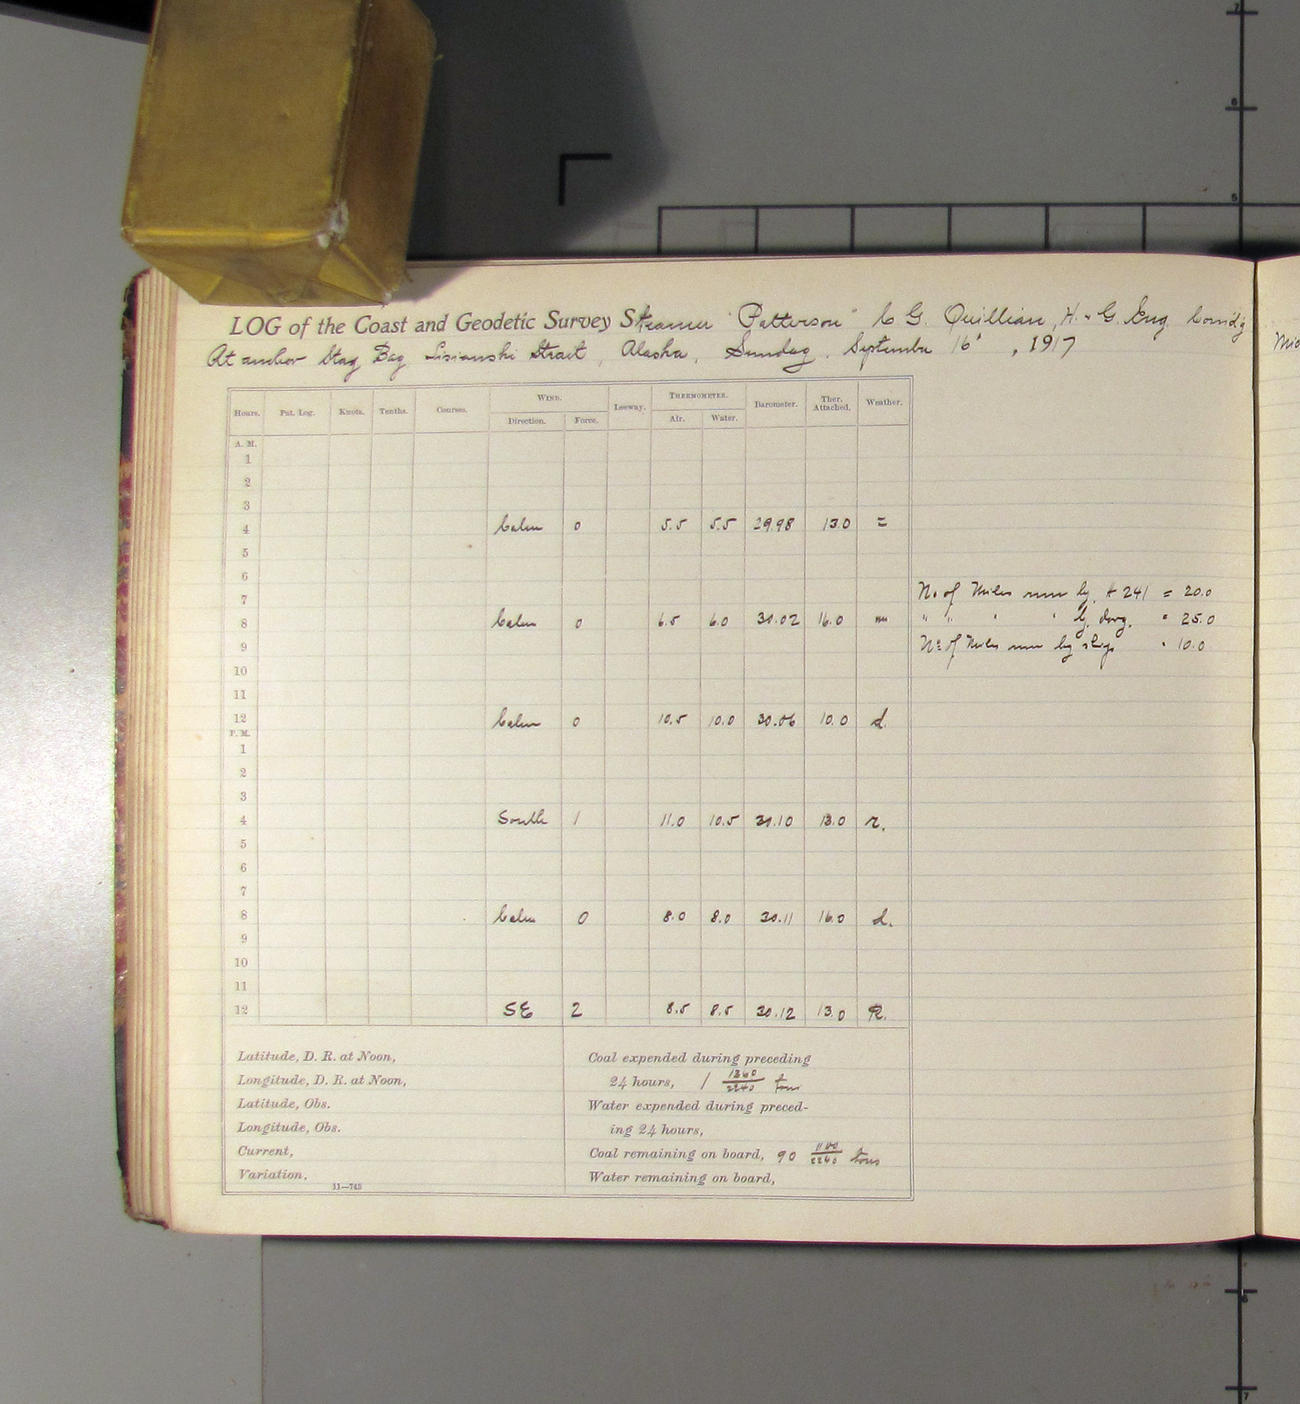 LOG of the Coast and Geodetic Survey Steamer "Patterson" C. G. Quillian, H. & G. Eng. Comd'g
At anchor Stag Bay Lisianski Strait, Alaska, Sunday, September 16", 1917
Hours. Pat. Log. Knots. Tenths. Courses. WIND. Leeway. THERMOMETER. Barometer. Ther. Attached. Weather.
Direction. Force. Air. Water.
A. M.
1
2
3
4 Calm 0 5.5 5.5 29.98 13.0 =
5
6
7 No of Miles run by # 241 = 20.0
8 Calm 0 6.5 6.0 30.02 16.0 m " " " " by = 25.0
9 No of Miles run by " 10.0
10
11
12 Calm 0 10.5 10.0 30.06 10.0 d.
P. M.
1
2
3
4 South 1 11.0 10.5 30.10 13.0 r.
5
6
7
8 Calm 0 8.0 8.0 30.11 16.0 d.
9
10
11
12 SE 2 8.5 8.5 30.12 13.0 R.
Latitude, D. R. at Noon,
Longitude, D. R. at Noon,
Latitude, Obs.
Longitude, Obs.
Current,
Variation,
11—743
Coal expended during preceding
24 hours, 1 1360/2240 tons
Water expended during preced-
ing 24 hours,
Coal remaining on board, 90 /2240 tons
Water remaining on board,
7
6
5
6
7